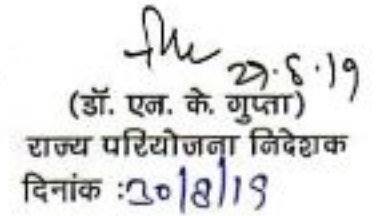 29.8.19
(डॉ. एन. के. गुप्ता)
राज्य परियोजना निदेशक
दिनांक :30/8/19